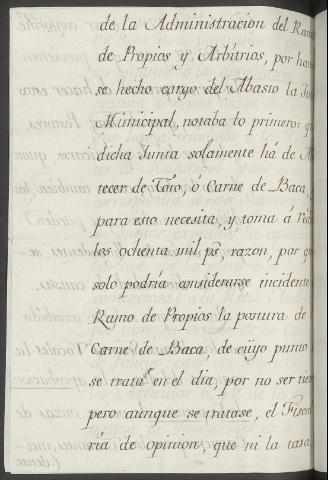 de la Administracion del Ramo
de Propios y Arbitrios, por
se hecho cargo del Abasto la
Municipal, notaba lo primero:
dicha Junta solamente há de
tecer de Toro, ó Carne de Baca,
para esto necesita, y toma á
los ochenta mil p.s, razon, por
solo podría considerarse incidente
Ramo de Propios la postura de
Carne de Baca, de cuyo punto
se trata en el dia, por no ser
pero aunque se tratase, el Fiscal
ría de opinion, que ni la tasa,